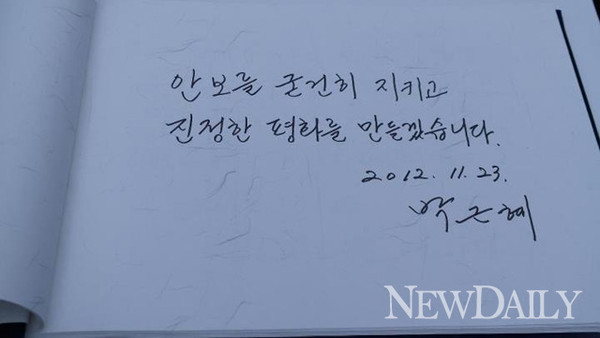 안보를 굳건히 지키고
진정한 평화를 만들겠습니다.
2012. 11. 23.
박근혜
NEWDAILY